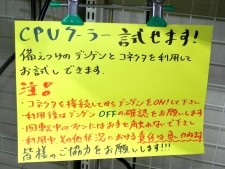 CPUクーラー試せます!
備えつけのデンゲンとコネクタを利用して
お試しできます.
注意
・コネクタを接続してからデンゲンをONして下さい
・利用後はデンゲンOFFの確認をお願いします.
・回転中のファンにはお手を触れないで下さい
・利用中、その他状況における責任は負いかねます
皆様のご協力をお願いします!!!